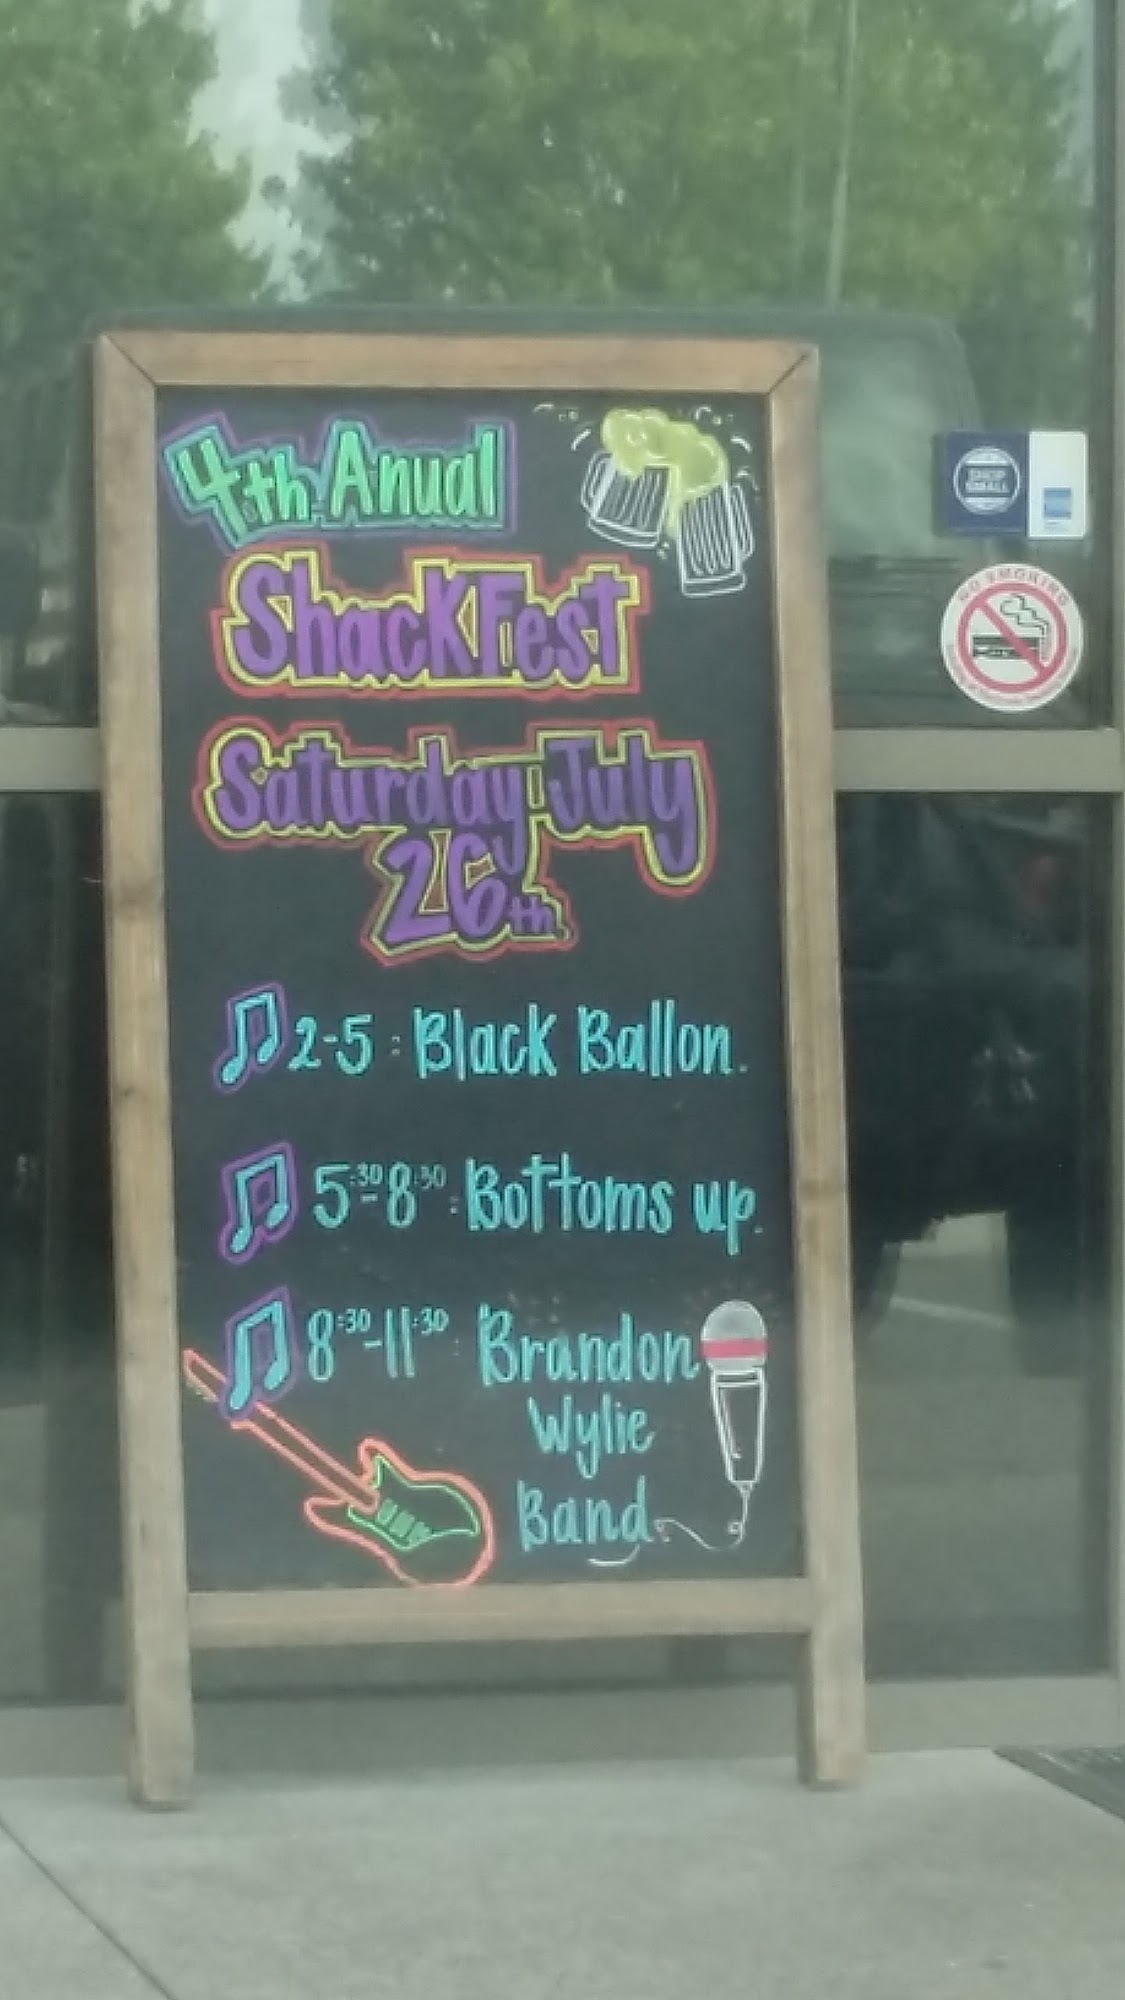 4th Anual
ShackFest
Saturday July
26th.
2-5 : Black Ballon.
5:30-8:30 : Bottoms up.
8:30-11:30 : Brandon
Wylie
Band.
SHOP
SMALL
NO SMOKING